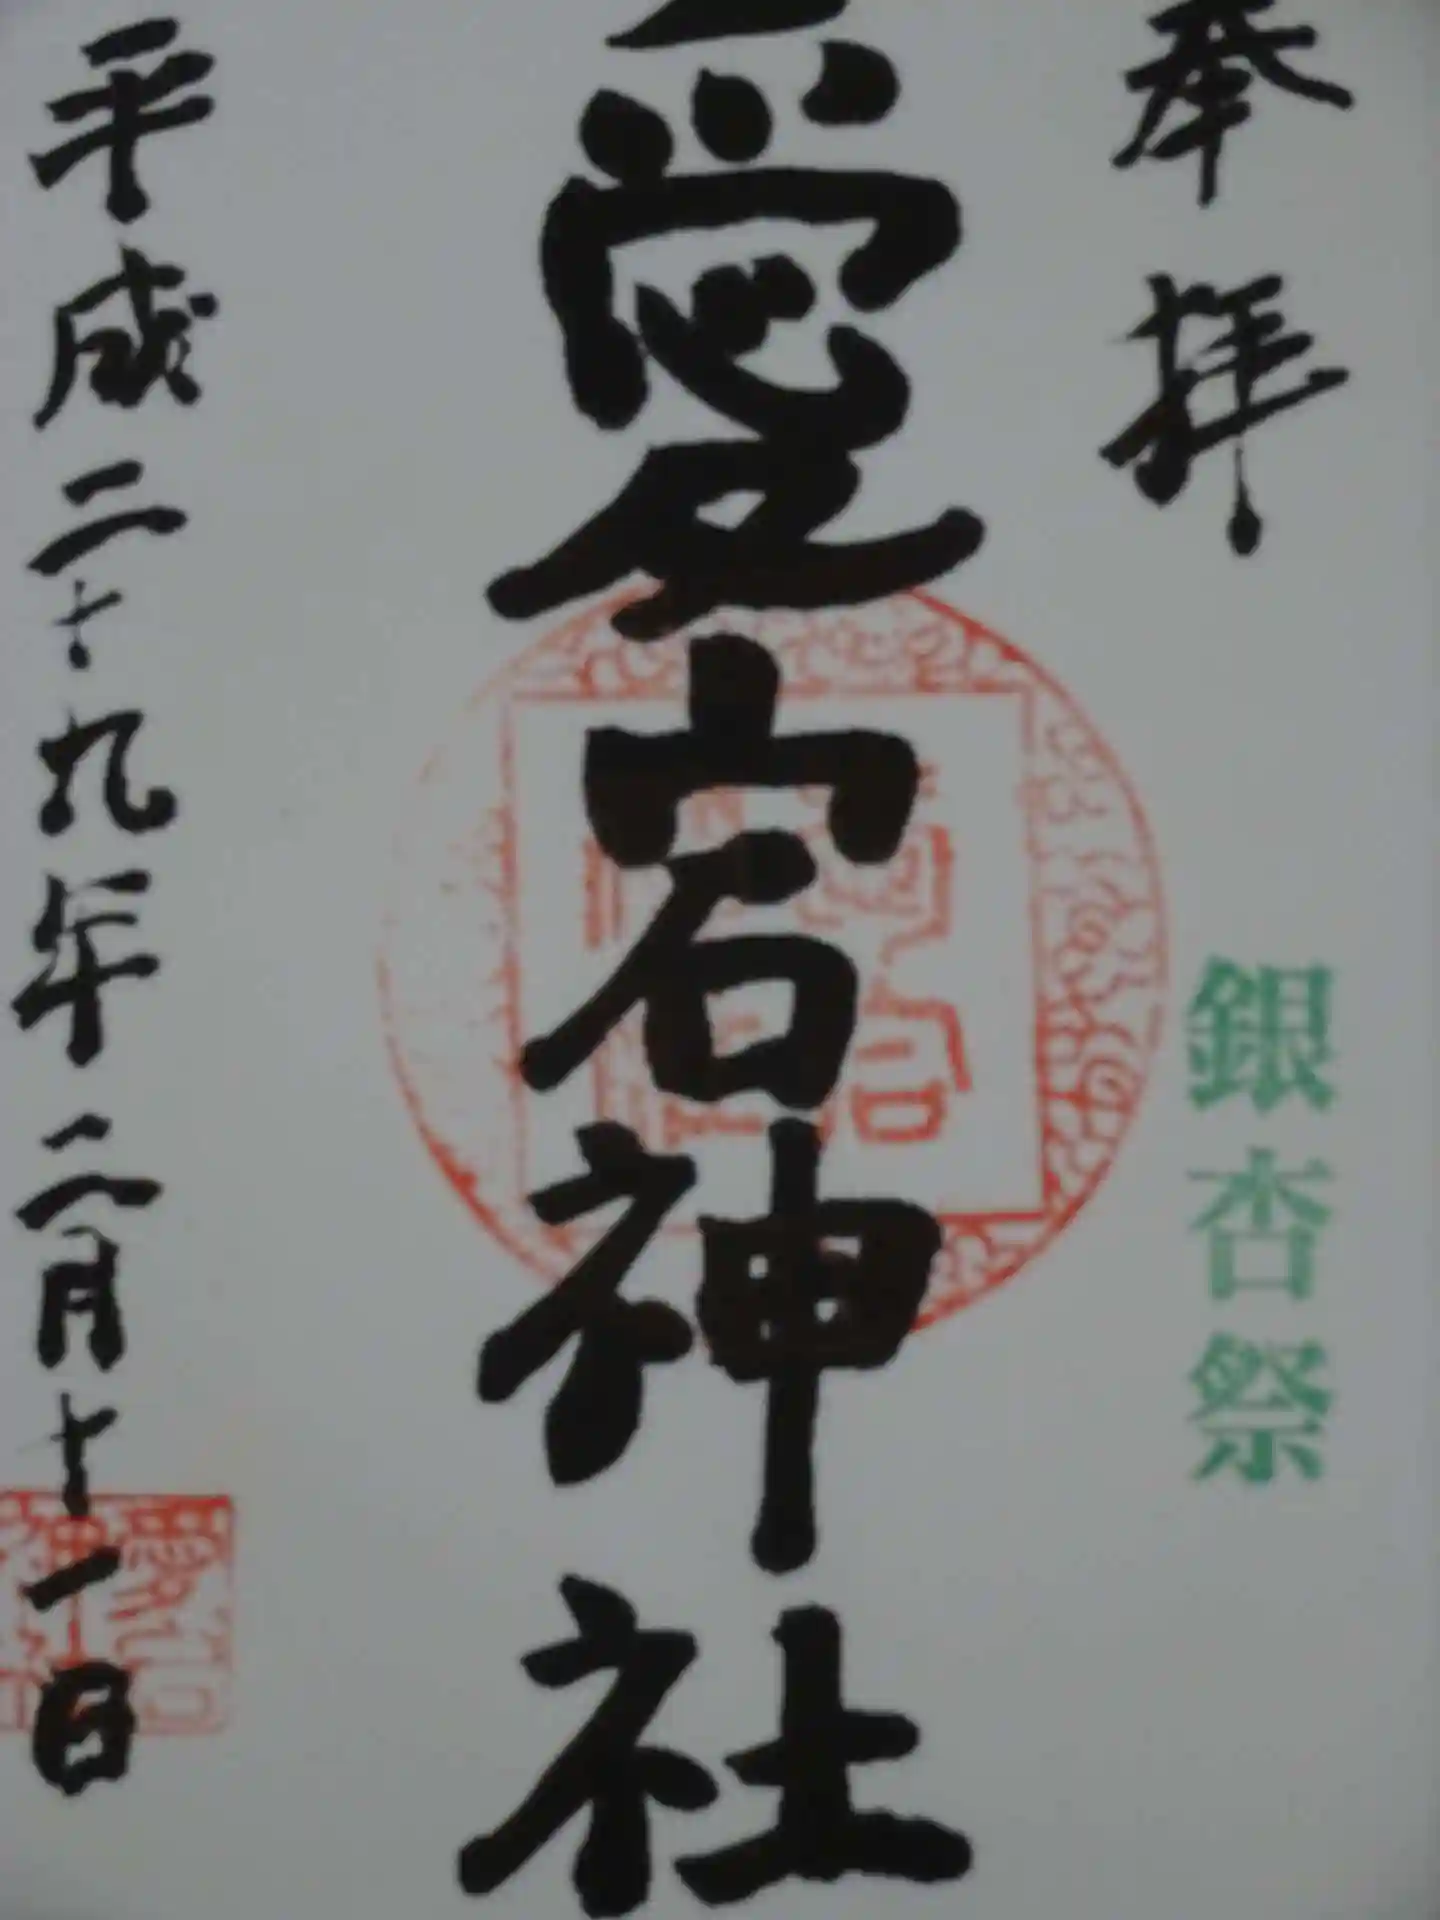 奉拝
銀杏祭
愛宕神社
平成二十九年二月十一日